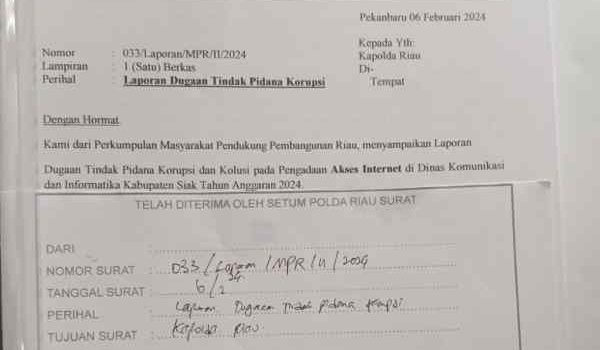 Pekanbaru 06 Februari 2024
Kepada Yth:
Nomor : 033/Laporan/MPR/II/2024 Kapolda Riau
Lampiran : 1 (Satu) Berkas Di-
Perihal : Laporan Dugaan Tindak Pidana Korupsi Tempat
Dengan Hormat
Kami dari Perkumpulan Masyarakat Pendukung Pembangunan Riau, menyampaikan Laporan
Dugaan Tindak Pidana Korupsi dan Kolusi pada Pengadaan Akses Internet di Dinas Komunikasi
dan Informatika Kabupaten Siak Tahun Anggaran 2024.
TELAH DITERIMA OLEH SETUM POLDA RIAU SURAT
DARI :
NOMOR SURAT : 033/Laporan/MPR/II/2024
TANGGAL SURAT : 6/2 24
PERIHAL : Laporan Dugaan tindak pidana korupsi
TUJUAN SURAT : Kapolda Riau